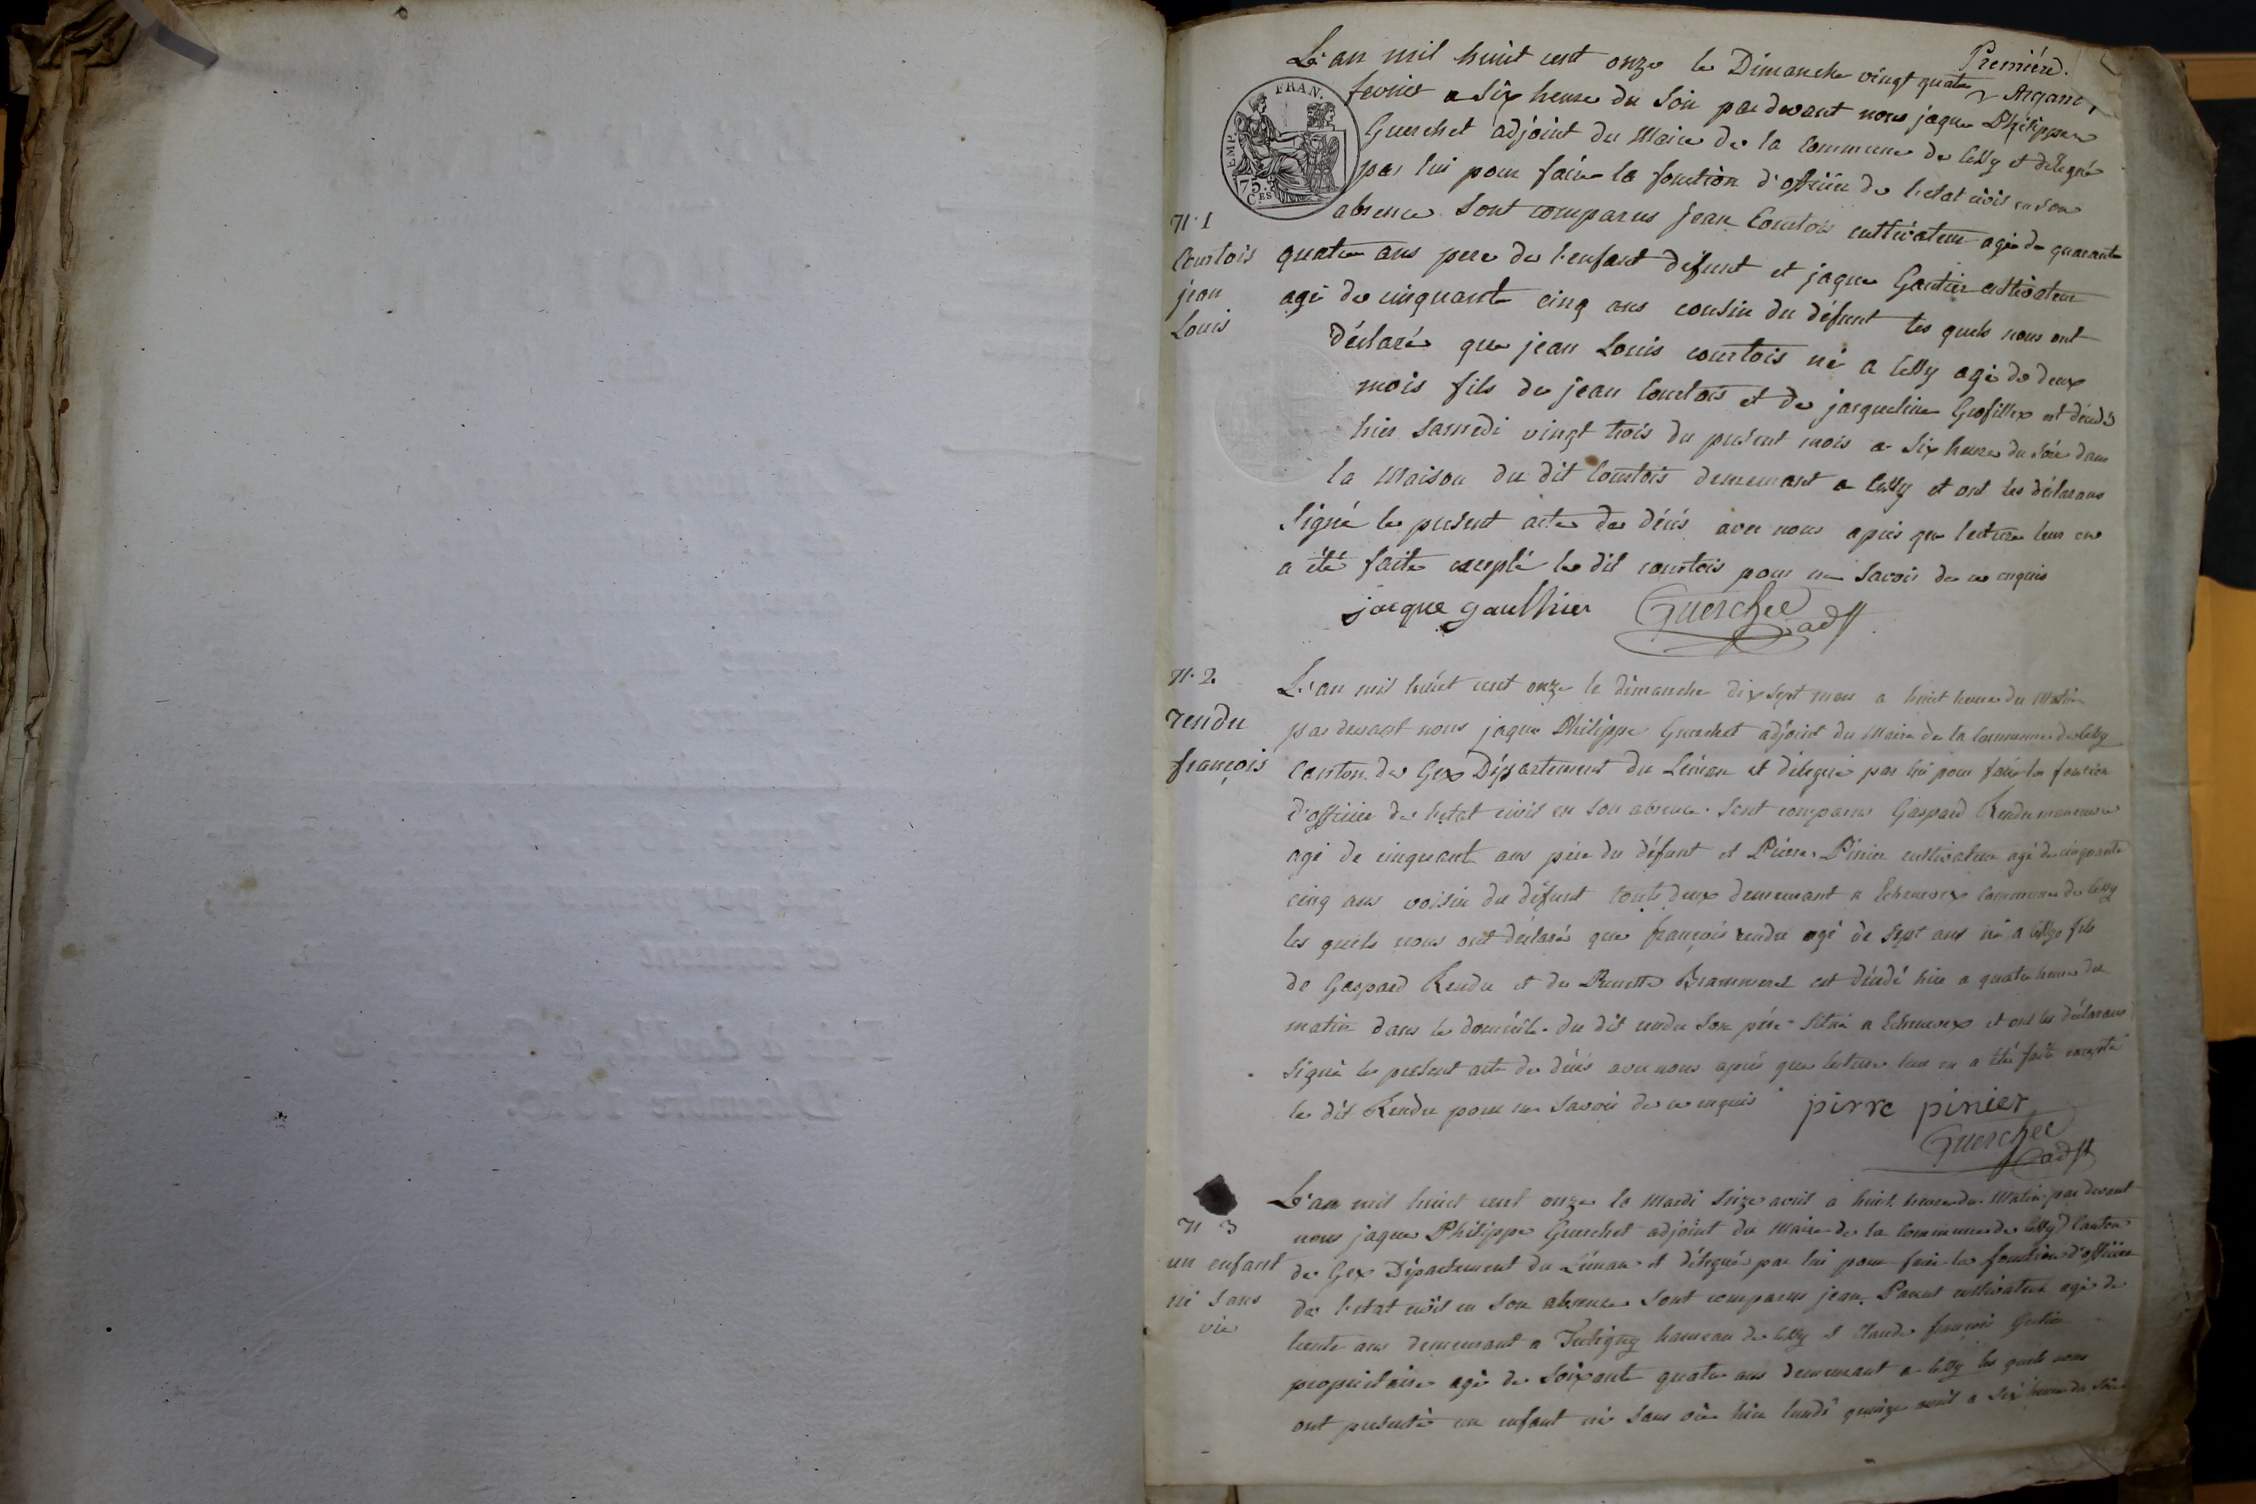 Premiére.
L'an mil huit cent onze le Dimanche vingt quatre
fevrier a six heure du soir par devant nous jaque Philippe
Guerchet adjoint du Maire de la commune de Cessy et délegué
par lui pour faire la fonction d'officier de l'etat civil en son
absence sont comparus jean Courtois cultivateur agé de quarante
quatre ans pere de l'enfant défunt et jaque Gautier cultivateur
agé de cinquante cinq ans cousin du défunt les quels nous ont
déclaré que jean Louis courtois né a Cessy agé de deux
mois fils de jean Courtois et de jacqueline Grosfillex est décédé
hier samedi vingt trois du present mois a six heure du soir dans
la Maison du dit Courtois demeurant a Cessy et ont les déclarans
signé le present acte de décés avec nous aprés que lecture leur en
a été faite excepté le dit courtois pour ne savoir de ce enquis
jacque gauthier Guerchet adjt
FRAN.
EMP.
75.
CES
N. 1
Courtois
jean
Louis
N. 2.
rendu
françois
L'an mil huit cent onze le dimanche dix sept mars a huit heure du Matin
par devant nous jaque Philippe Guerchet adjoint du Maire de la Commune de Cessy
Canton de Gex Département du Léman et délegué par lui pour faire la fonction
d'officier de l'etat civil en son absence. sont comparus Gaspard Rendu
agé de cinquante ans pére du défunt et Pierre Pinier cultivateur agé de cinquante
cinq ans voisin du défunt touts deux demeurant a Echenevex commune de Cessy
les quels nous ont déclaré que françois rendu agé de sept ans né a Cessy fils
de Gaspard Rendu et de est décédé hier a quatre heure du
matin dans le domicile du dit rendu son pére situé a Echenevex et ont les déclarans
signé le present acte de décés avec nous aprés que lecture leur en a été faite excepté
le dit Rendu pour ne savoir de ce enquis pirre pinier
Guerchet
adjt
N 3
un enfant
né sans
vie
L'an mil huit cent onze le Mardi seize avril a huit heure du Matin par devant
nous jaque Philippe Guerchet adjoint du Maire de la commune de Cessy Canton
de Gex Département du Léman et délegué par lui pour faire la fonction d'officier
de l'etat civil en son absence sont comparus jean Panut cultivateur agé de
trente ans demeurant a hameau de Cessy et Claude françois
proprietaire agé de soixante quatre ans demeurant a Cessy les quels nous
ont presenté un enfant né sans vie hier lundi quinze avril a six heure du soir